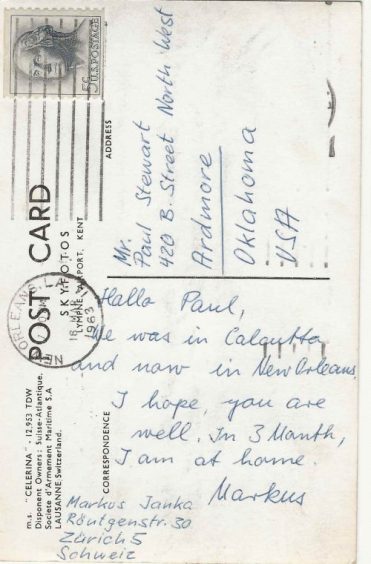 5¢ U.S. POSTAGE
NEW ORLEANS, LA.
18 MAR
1963
POST CARD
SKYFOTOS
LYMPNE AIRPORT, KENT
ADDRESS
Mr.
Paul Stewart
420 B. Street North West
Ardmore
Oklahoma
USA
m.s. "CELERINA" - 12,953 TDW
Disponent Owners: Suisse-Atlantique,
Societe d'Armement Maritime S.A
LAUSANNE Switzerland.
CORRESPONDENCE
Hallo Paul,
We was in Calcutta
and now in New Orleans.
I hope, you are
well. In 3 Month,
I am at home.
Markus
Markus Janka
Röntgenstr. 30
Zürich 5
Schweiz